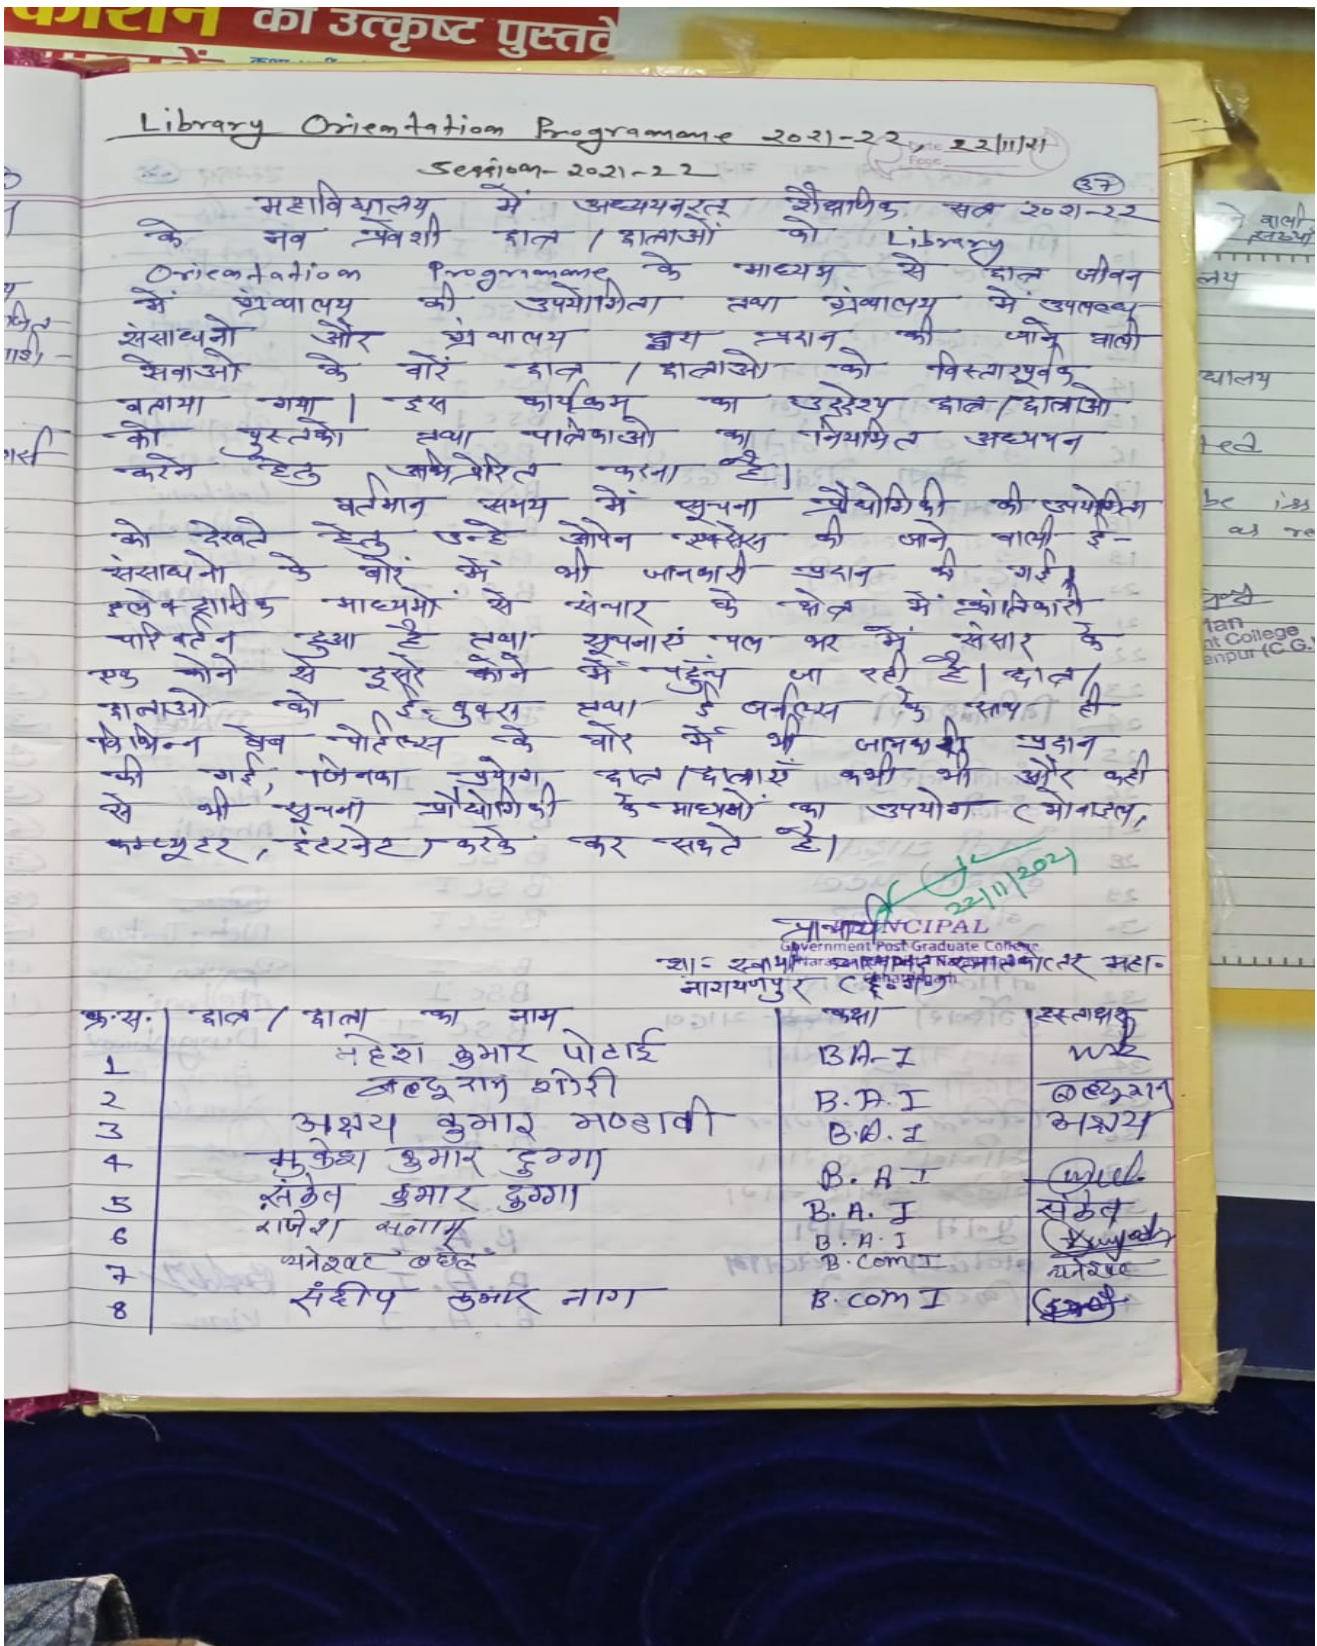 की उत्कृष्ट पुस्तकें
Library Orientation Programme 2021-22, 22/11/21
Session - 2021-22
37
महाविद्यालय में अध्ययनरत् शैक्षणिक सत्र 2021-22
के नव प्रवेशी छात्र / छात्राओं को Library
Orientation Programme के माध्यम से छात्र जीवन
में ग्रंथालय की उपयोगिता तथा ग्रंथालय में उपलब्ध
संसाधनो और ग्रंथालय द्वारा प्रदान की जाने वाली
सेवाओ के बारें छात्र / छात्राओ को विस्तारपूर्वक
बताया गया | इस कार्यक्रम का उद्देश्य छात्र / छात्राओ
को पुस्तको तथा पत्रिकाओ का नियमित अध्ययन
करने हेतु अभिप्रेरित करना है।
वर्तमान समय में सूचना प्रौद्योगिकी की उपयोगिता
को देखते हेतु उन्हे ओपेन एक्सेस की जाने वाली ई-
संसाधनो के बारें में भी जानकारी प्रदान की गई।
इलेक्ट्रानिक माध्यमों से संचार के क्षेत्र में क्रांतिकारी
परिवर्तन हुआ है तथा सूचनाएं पल भर में संसार के
एक कोने से दूसरे कोने में पहुँच जा रही है। छात्र/
छात्राओ को ई-बुक्स तथा ई जर्नल्स के साथ ही
विभिन्न वेब पोर्टल्स के बारे में भी जानकारी प्रदान
की गई, जिनका प्रयोग छात्र / छात्राएँ कभी भी और कही
से भी सूचना प्रौद्योगिकी के माध्यमों का उपयोग ( मोबाइल,
कम्प्यूटर, इंटरनेट) करके कर सकते है।
22/11/2021
प्राचार्य
PRINCIPAL
Government Post Graduate College
शा. स्वामी आत्मानंद स्नातकोत्तर महा.
नारायणपुर (छ.ग.)
क्र.स. छात्र / छात्रा का नाम कक्षा हस्ताक्षर
1 महेश कुमार पोटाई BA-I
2 बल्दूराम शोरी B.A.I बल्दूराम
3 अक्षय कुमार मण्डावी B.A.I अक्षय
4 मुकेश कुमार दुग्गा B.A I
5 संकेत कुमार दुग्गा B.A. I संकेत
6 राजेश सलाम B.A.I
7 धनेश्वर बघेल B.Com I धनेश्वर
8 संदीप कुमार नाग B.Com I